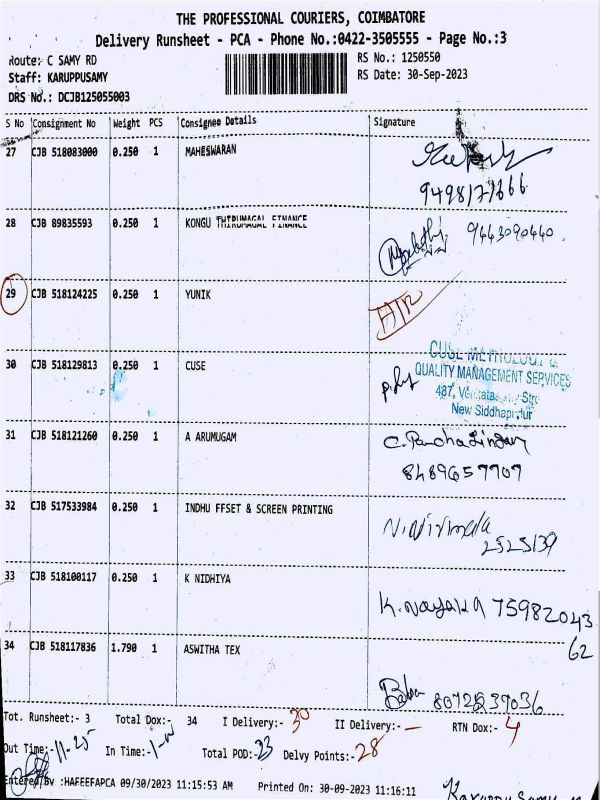 THE PROFESSIONAL COURIERS, COIMBATORE
Delivery Runsheet - PCA - Phone No.:0422-3505555 - Page No.:3
Route: C SAMY RD
RS No.: 1250550
Staff: KARUPPUSAMY
RS Date: 30-Sep-2023
DRS No.: DCJB125055003
S No Consignment No Weight PCS Consignee Details Signature
27 CJB 518083000 0.250 1 MAHESWARAN
28 CJB 89835593 0.250 1 KONGU THIRUMAGAL FINANCE
9443090440
29 CJB 518124225 0.250 1 YUNIK
30 CJB 518129813 0.250 1 CUSE
QUALITY MANAGEMENT SERVICES
487,
New Siddhapudur
31 CJB 518121260 0.250 1 A ARUMUGAM
8489657707
32 CJB 517533984 0.250 1 INDHU FFSET & SCREEN PRINTING
N.Nirmala
2525139
33 CJB 518100117 0.250 1 K NIDHIYA
75982043
62
34 CJB 518117836 1.790 1 ASWITHA TEX
Tot. Runsheet:- 3 Total Dox:- 34 I Delivery:- 30 II Delivery:- — RTN Dox:- 4
Out Time:- 11-25 In Time:- Total POD:- 33 Delvy Points:- 28
Entered By :HAFEEFAPCA 09/30/2023 11:15:53 AM Printed On: 30-09-2023 11:16:11